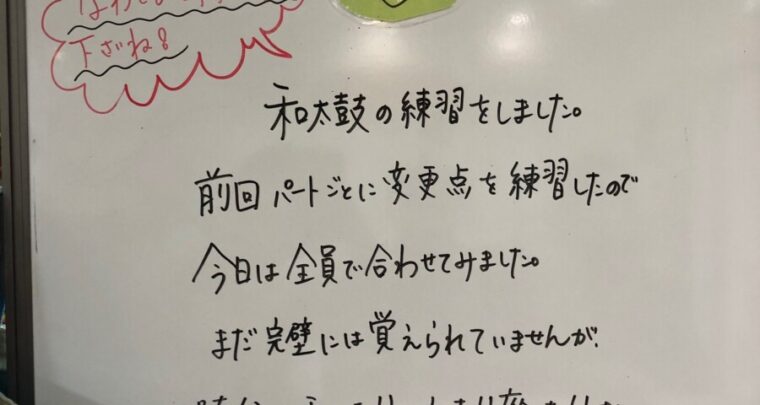 下さいね!
和太鼓の練習をしました。
前回パートごとに変更点を練習したので
今日は全員で合わせてみました。
まだ完璧には覚えられていませんが、